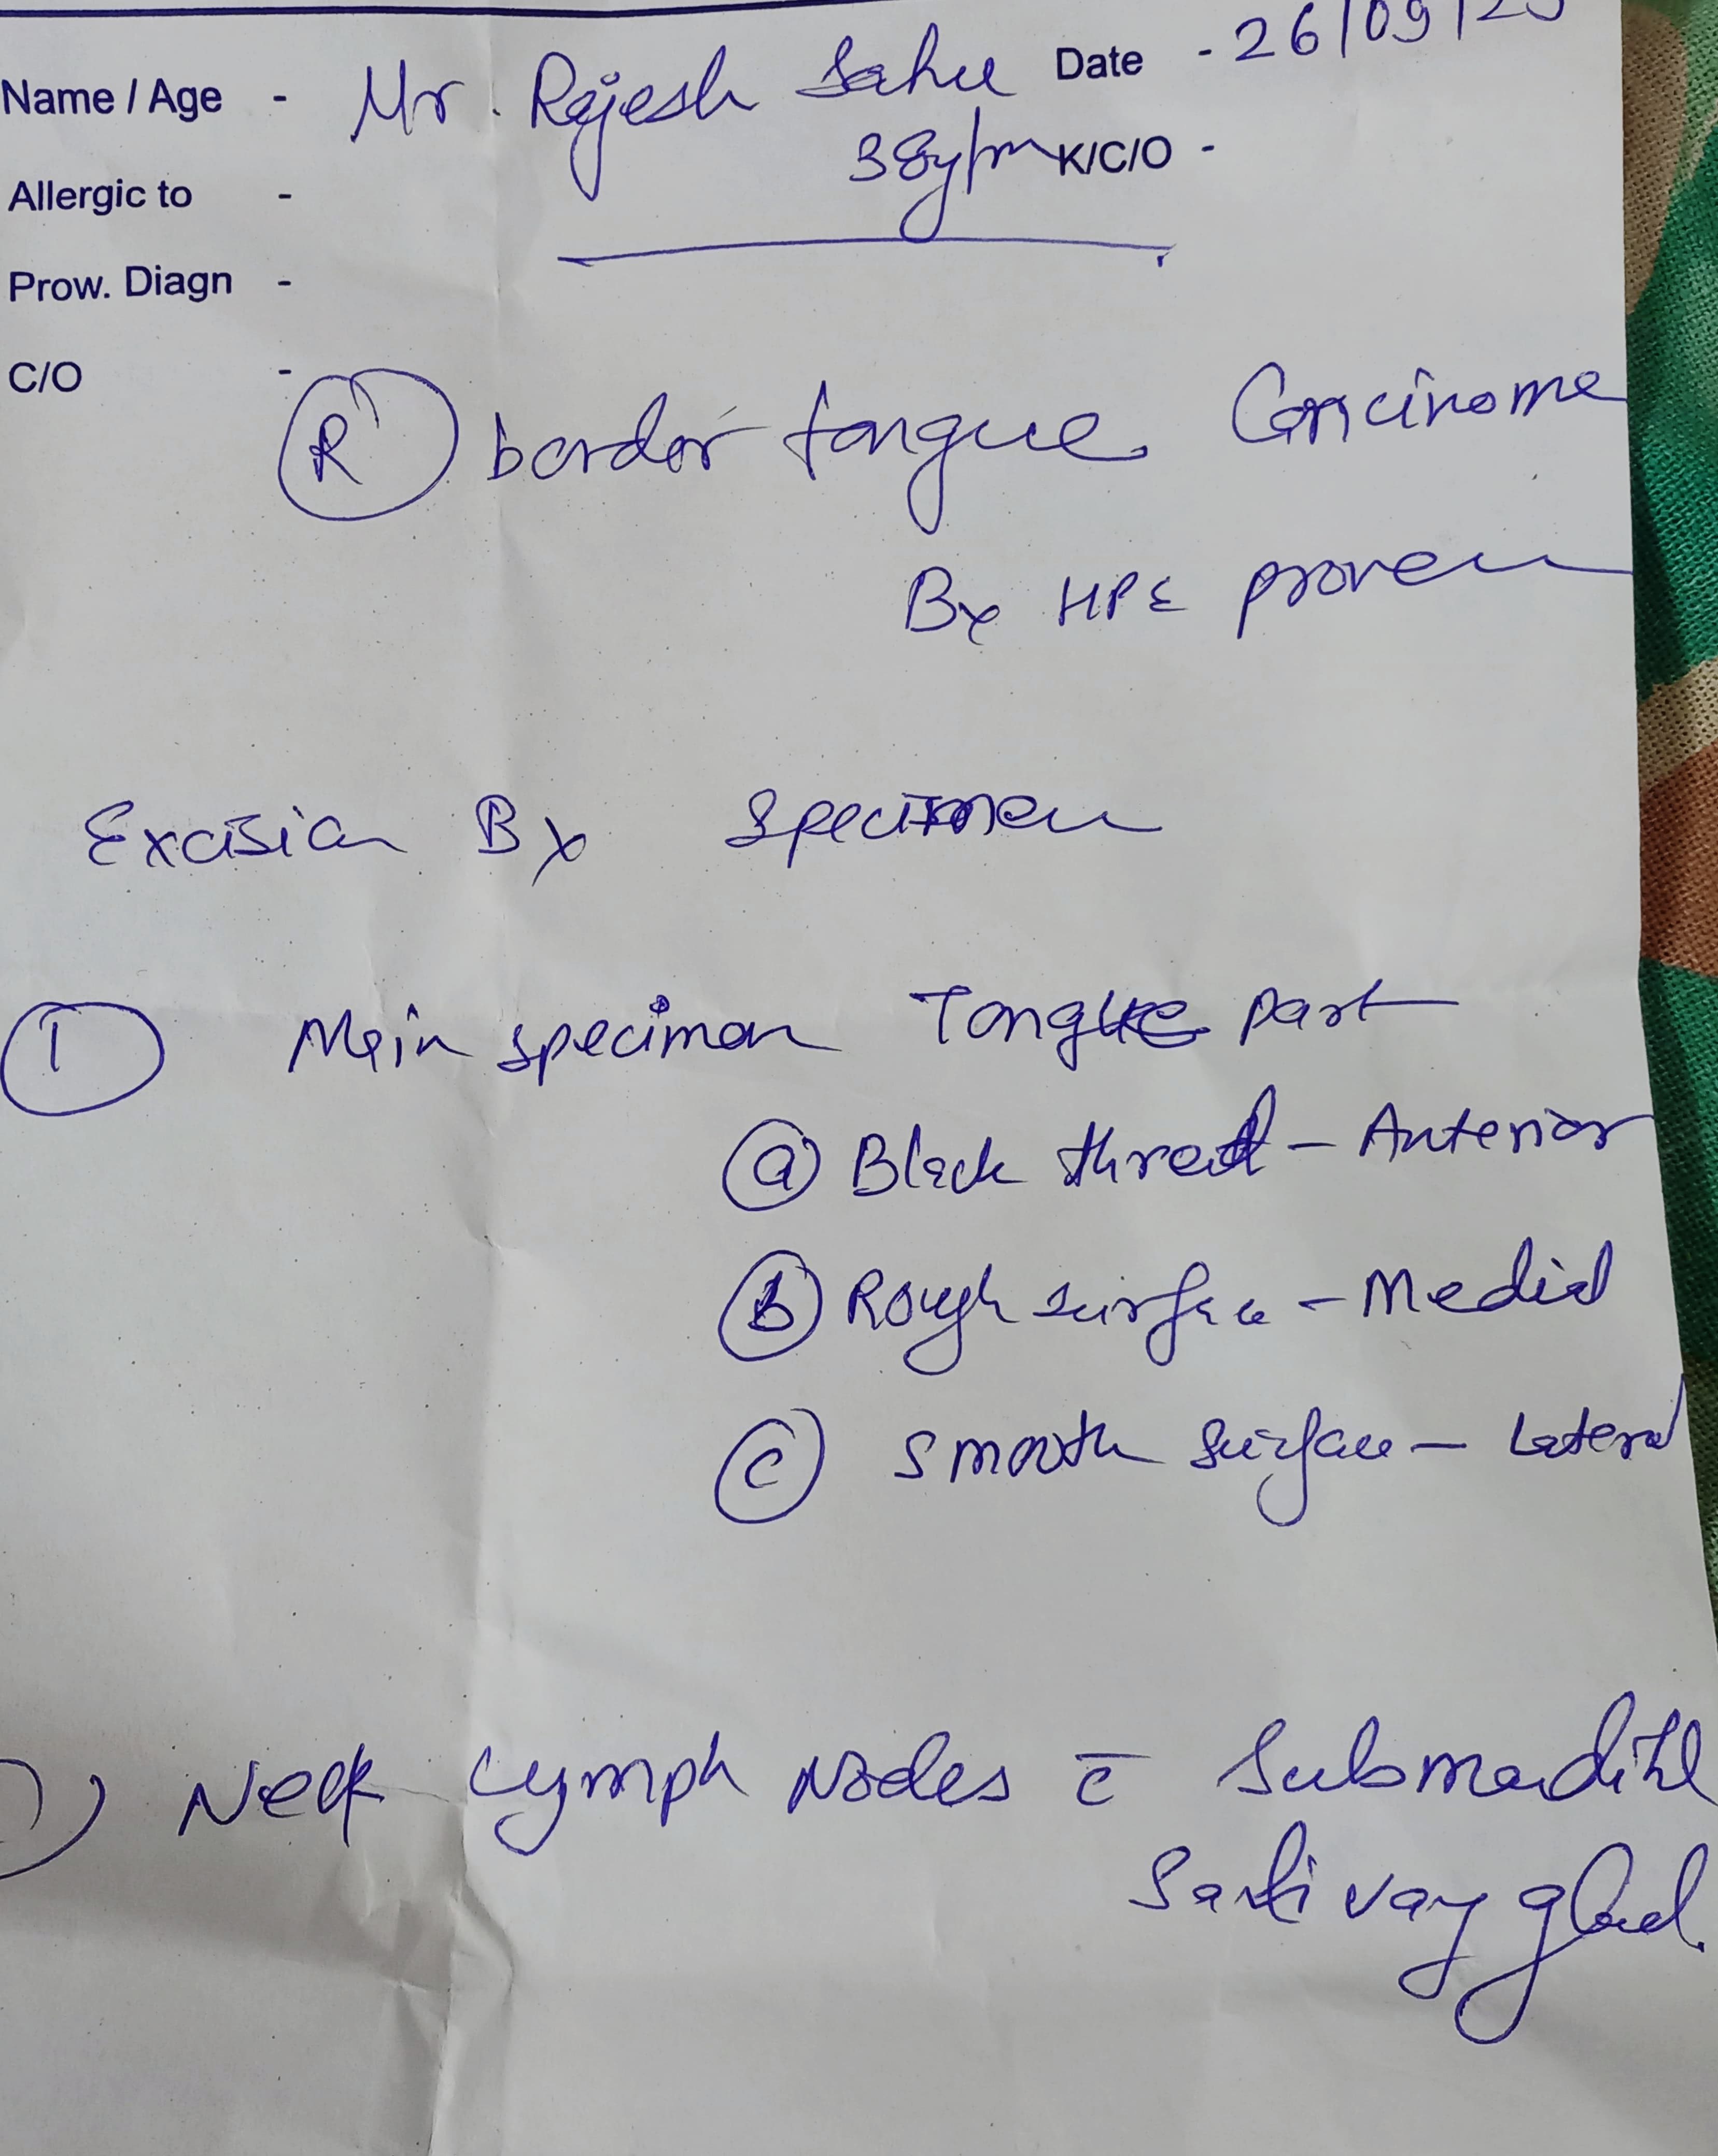 Name / Age - Mr. Rajesh Sahu Date - 26/09/25
38y/m K/C/O -
Allergic to -
Prow. Diagn -
C/O -
(R) border tongue Carcinoma
Bx HPE proven
Excision Bx Specimen
(1) Main specimen Tongue part
(a) Black thread - Anterior
(b) Rough surface - Medial
(c) Smooth surface - Lateral
Neck Lymph Nodes c̄
Salivary gland.